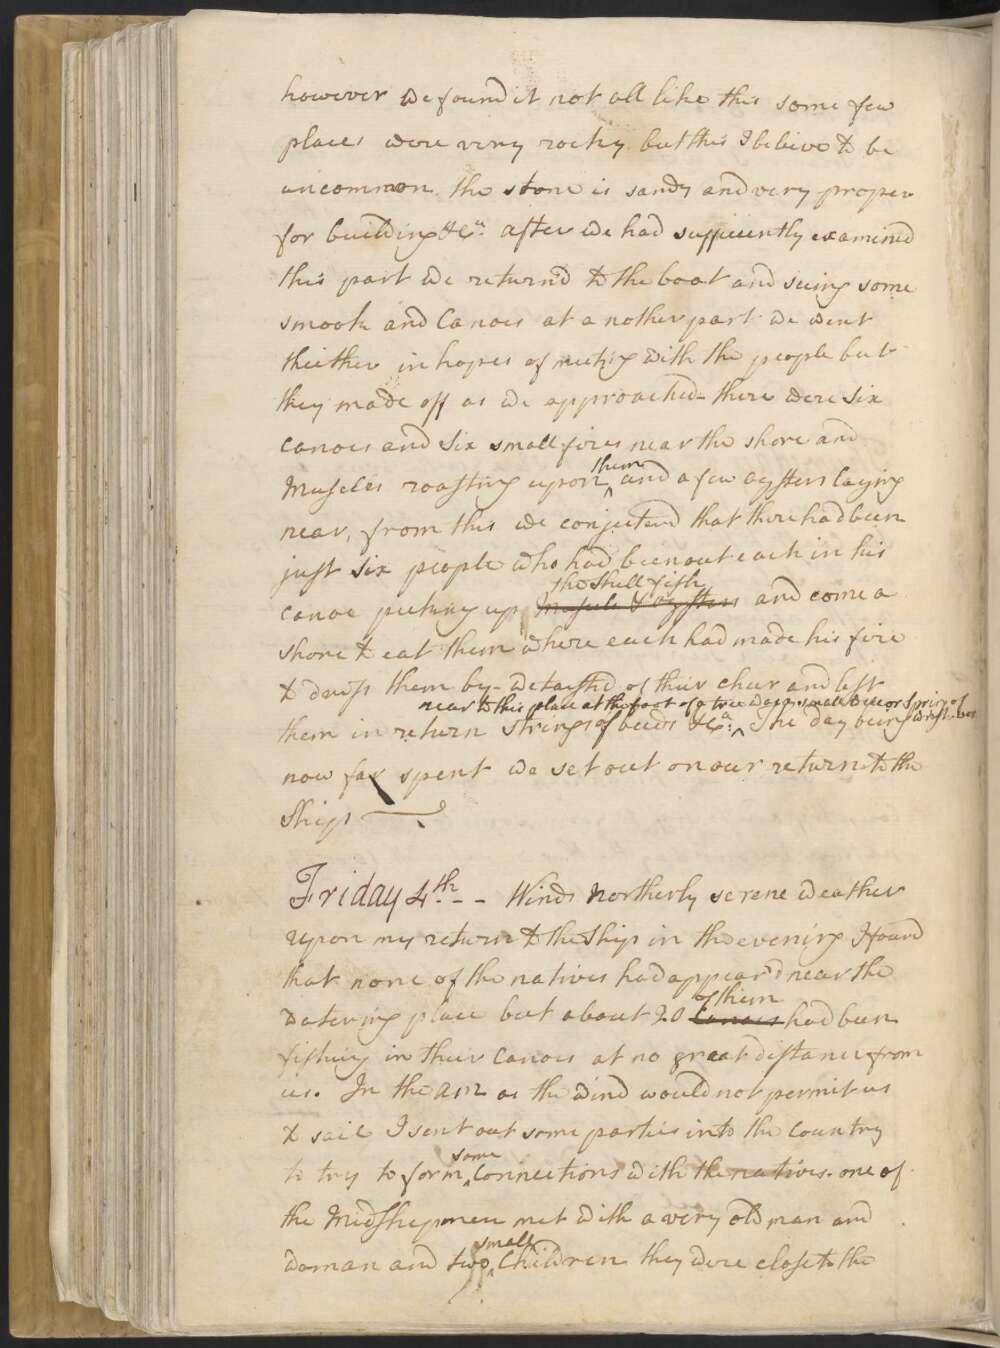 however we found it not all like this some few
places were very rocky but this I beleive to be
uncommon the stone is sandy and very proper
for building &Ca: after we had sufficiently examined
this part we return'd to the boat and seeing some
smook and Canoes at a nother part we went
thither in hopes of meeting with the people but
they made off as we approached there were Six
canoes and Six small fires near the shore and
Muscles roasting upon ^them and a few oysters laying
near, from this we conjecterd that there had been
just Six people who had been out each in his
canoe picking up
the Shell fish
Musels & oysters and come a
shore to eat them where each had made his fire
to dress them by - we taisted of thier cheer and left
near to this place at the foot of a tree was a small Well or Spring of water
them in return Strings of beeds &Ca: ^ The day being
now far spent we set out on our return to the
Ship
Friday 4th - - Winds Northerly serene weather
Upon my return to the Ship in the evening I found
that none of the natives had appear'd near the
Watering place but about 20
of them
Canoes had been
fishing in their Canoes at no great distance from
us. In the AM as the Wind would not permit us
to sail I sent out some parties into the Country
to try to form ^some Connections with the natives. one of
the Midshipmen met with a very old man and
woman and two ^small Children they were close to the